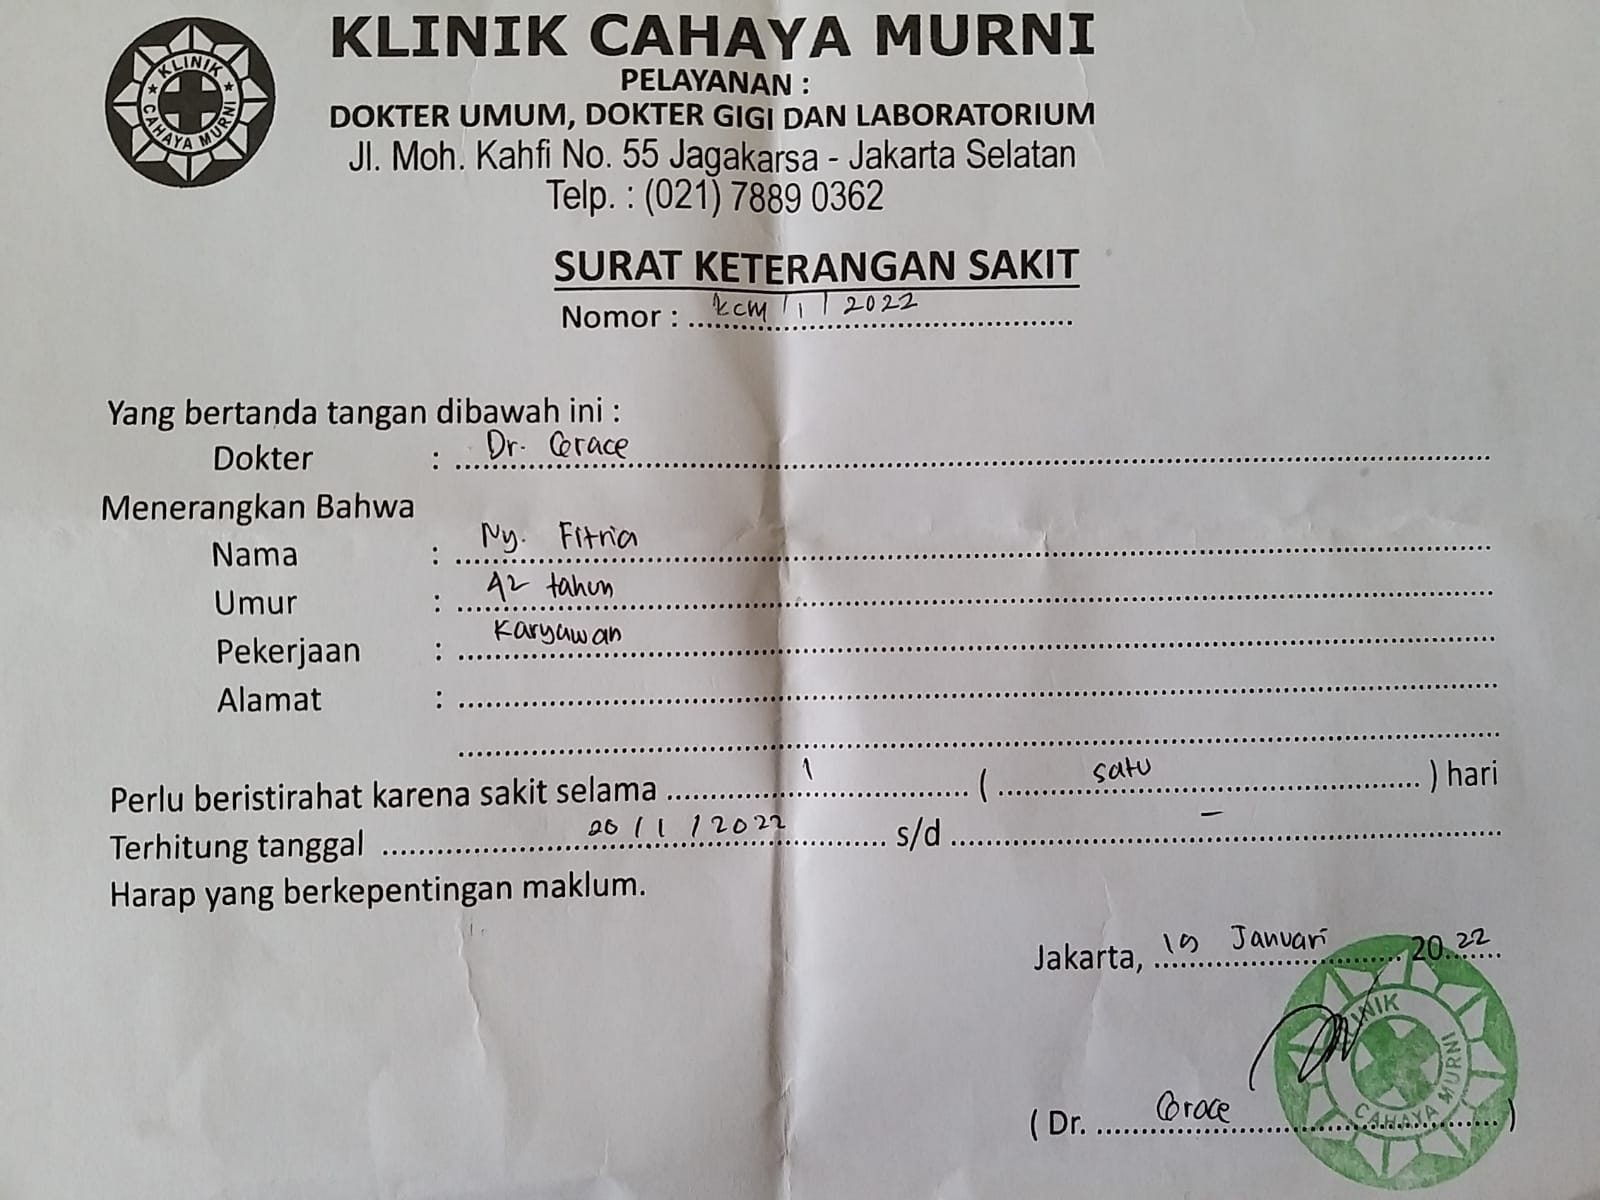 KLINIK CAHAYA MURNI
KLINIK CAHAYA MURNI
PELAYANAN :
DOKTER UMUM, DOKTER GIGI DAN LABORATORIUM
Jl. Moh. Kahfi No. 55 Jagakarsa - Jakarta Selatan
Telp. : (021) 7889 0362
SURAT KETERANGAN SAKIT
Nomor : KCM / 1 / 2022
Yang bertanda tangan dibawah ini :
Dokter : Dr. Grace
Menerangkan Bahwa
Nama : Ny. Fitria
Umur : 42 tahun
Pekerjaan : Karyawan
Alamat :
Perlu beristirahat karena sakit selama 1 ( satu ) hari
Terhitung tanggal 20 / 1 / 2022 s/d -
Harap yang berkepentingan maklum.
Jakarta, 19 Januari 2022
KLINIK CAHAYA MURNI
( Dr. Grace )